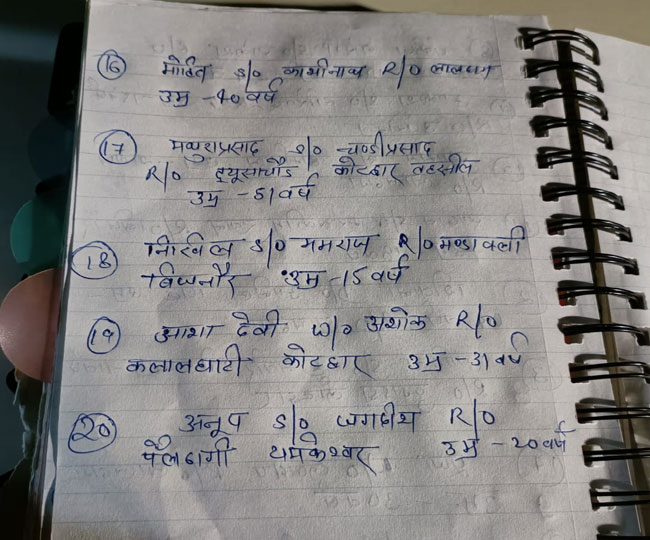 16 मोहित S/o काशीनाथ R/O लालढांग
उम्र - 40 वर्ष
17 मथुराप्रसाद S/o चण्डीप्रसाद
R/O कोटद्वार तहसील
उम्र - 51 वर्ष
18 निखिल S/o यमराज R/o मण्डावली
बिजनौर उम्र - 15 वर्ष
19 आशा देवी W/o अशोक R/o
कलालघाटी कोटद्वार उम्र - 31 वर्ष
20 अनूप S/o जगदीश R/o
यमकेश्वर उम्र - 20 वर्ष